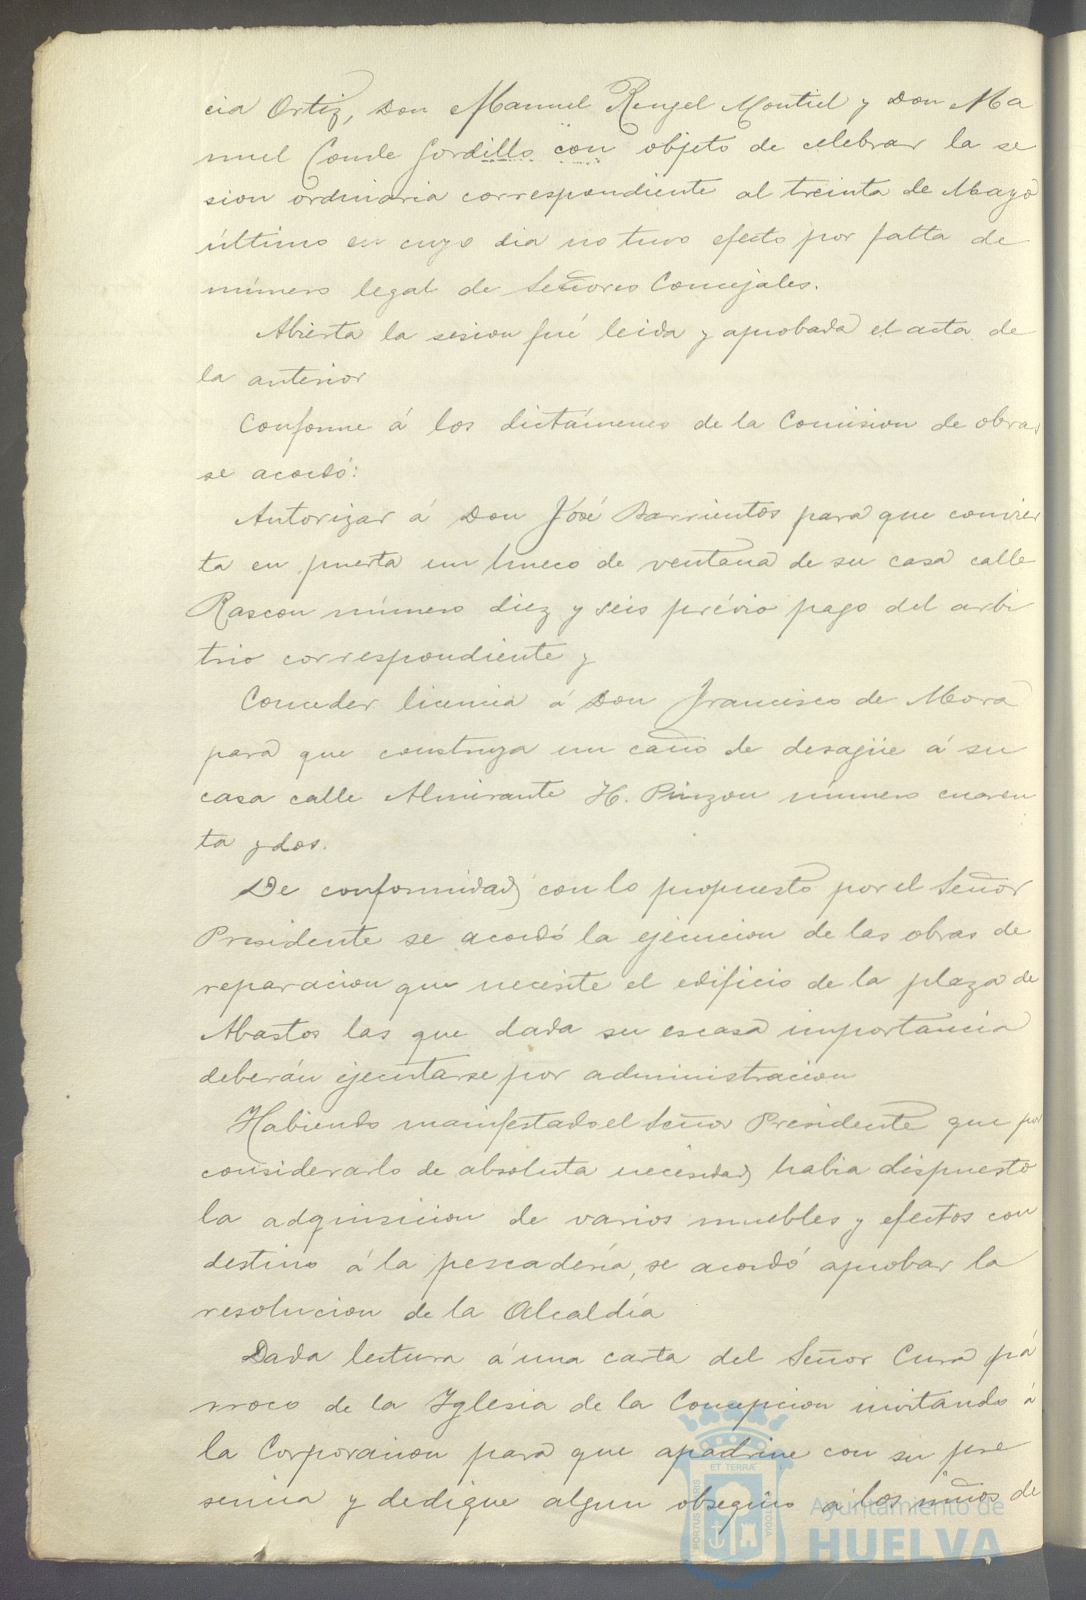 cia Ortiz, Don Manuel Rengel Montiel y Don Ma
nuel Conde Gordillo con objeto de celebrar la se
sion ordinaria correspondiente al treinta de Mayo
último en cuyo dia no tuvo efecto por falta de
número legal de Señores Concejales.
Abierta la sesion fué leida y aprobada el acta de
la anterior
Conforme á los dictámenes de la Comision de obras
se acordó:
Autorizar á Don José Barrientos para que convier
ta en puerta un hueco de ventana de su casa calle
Rascon número diez y seis prévio pago del arbi
trio correspondiente y
Conceder licencia á Don Francisco de Mora
para que construya un caño de desagüe á su
casa calle Almirante H. Pinzon número cuaren
ta y dos.
De conformidad con lo propuesto por el Señor
Presidente se acordó la ejecucion de las obras de
reparacion que necesite el edificio de la plaza de
Abastos las que dada su escasa importancia
deberán ejecutarse por administracion
Habiendo manifestado el Señor Presidente que por
considerarlo de absoluta necesidad habia dispuesto
la adquisicion de varios muebles y efectos con
destino á la pescadería, se acordó aprobar la
resolucion de la Alcaldía
Dada lectura á una carta del Señor Cura pá
rroco de la Iglesia de la Concepcion invitando á
la Corporacion para que apadrine con su pre
sencia y dedique algun obsequio á los niños de
ET TERRÆ
PORTUS MARIS
CUSTODIA
Ayuntamiento de
HUELVA